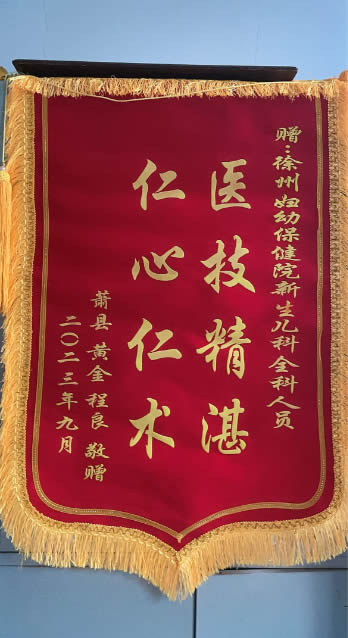 赠:徐州妇幼保健院新生儿科全科人员
医技精湛
仁心仁术
萧县 黄金 程良 敬赠
二〇二三年九月